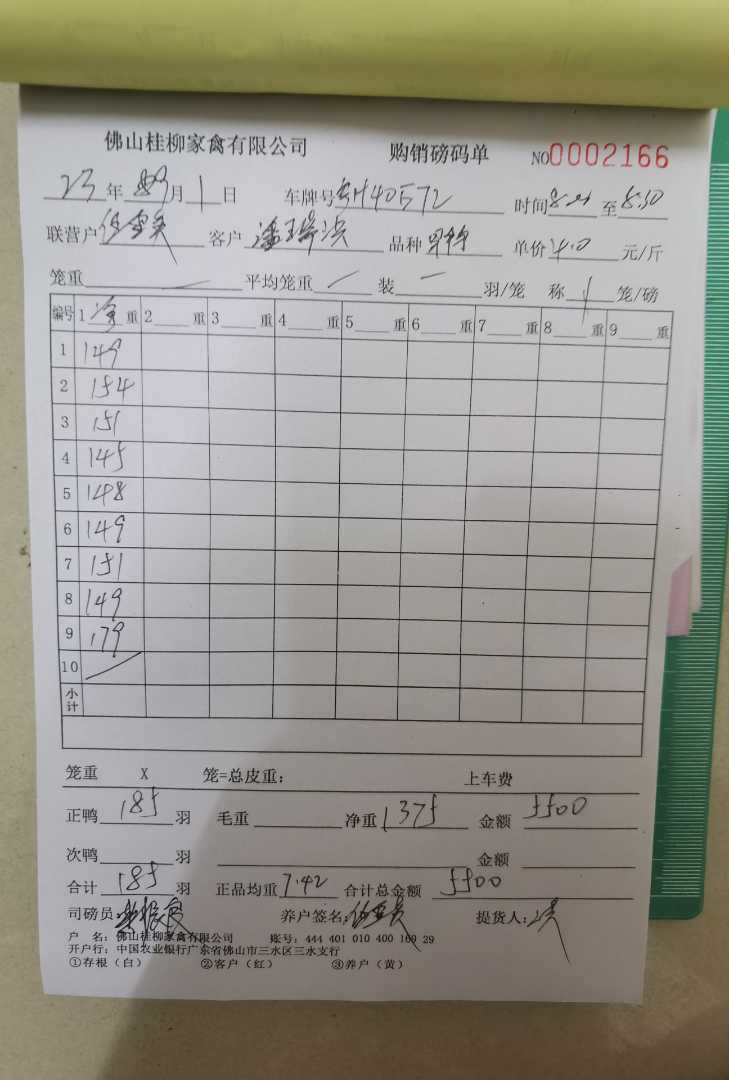 佛山桂柳家禽有限公司 购销磅码单 NO0002166
23年 09月 1日 车牌号 H40572 时间 至8:50
联营户 客户 潘 品种 单价4.0元/斤
笼重 — 平均笼重 — 装 — 羽/笼 称 1 笼/磅
编号 1净重 2重 3重 4重 5重 6重 7重 8重 9重
1 149
2 154
3 151
4 145
5 148
6 149
7 151
8 149
9 179
10 /
小计
笼重 X 笼=总皮重： 上车费
正鸭185羽 毛重 净重1375 金额5500
次鸭 羽 金额
合计185羽 正品均重7.42 合计总金额5500
司磅员: 养户签名: 提货人:
户 名：佛山桂柳家禽有限公司 账号：444 401 010 400 169 29
开户行：中国农业银行广东省佛山市三水区三水支行
①存根（白） ②客户（红） ③养户（黄）